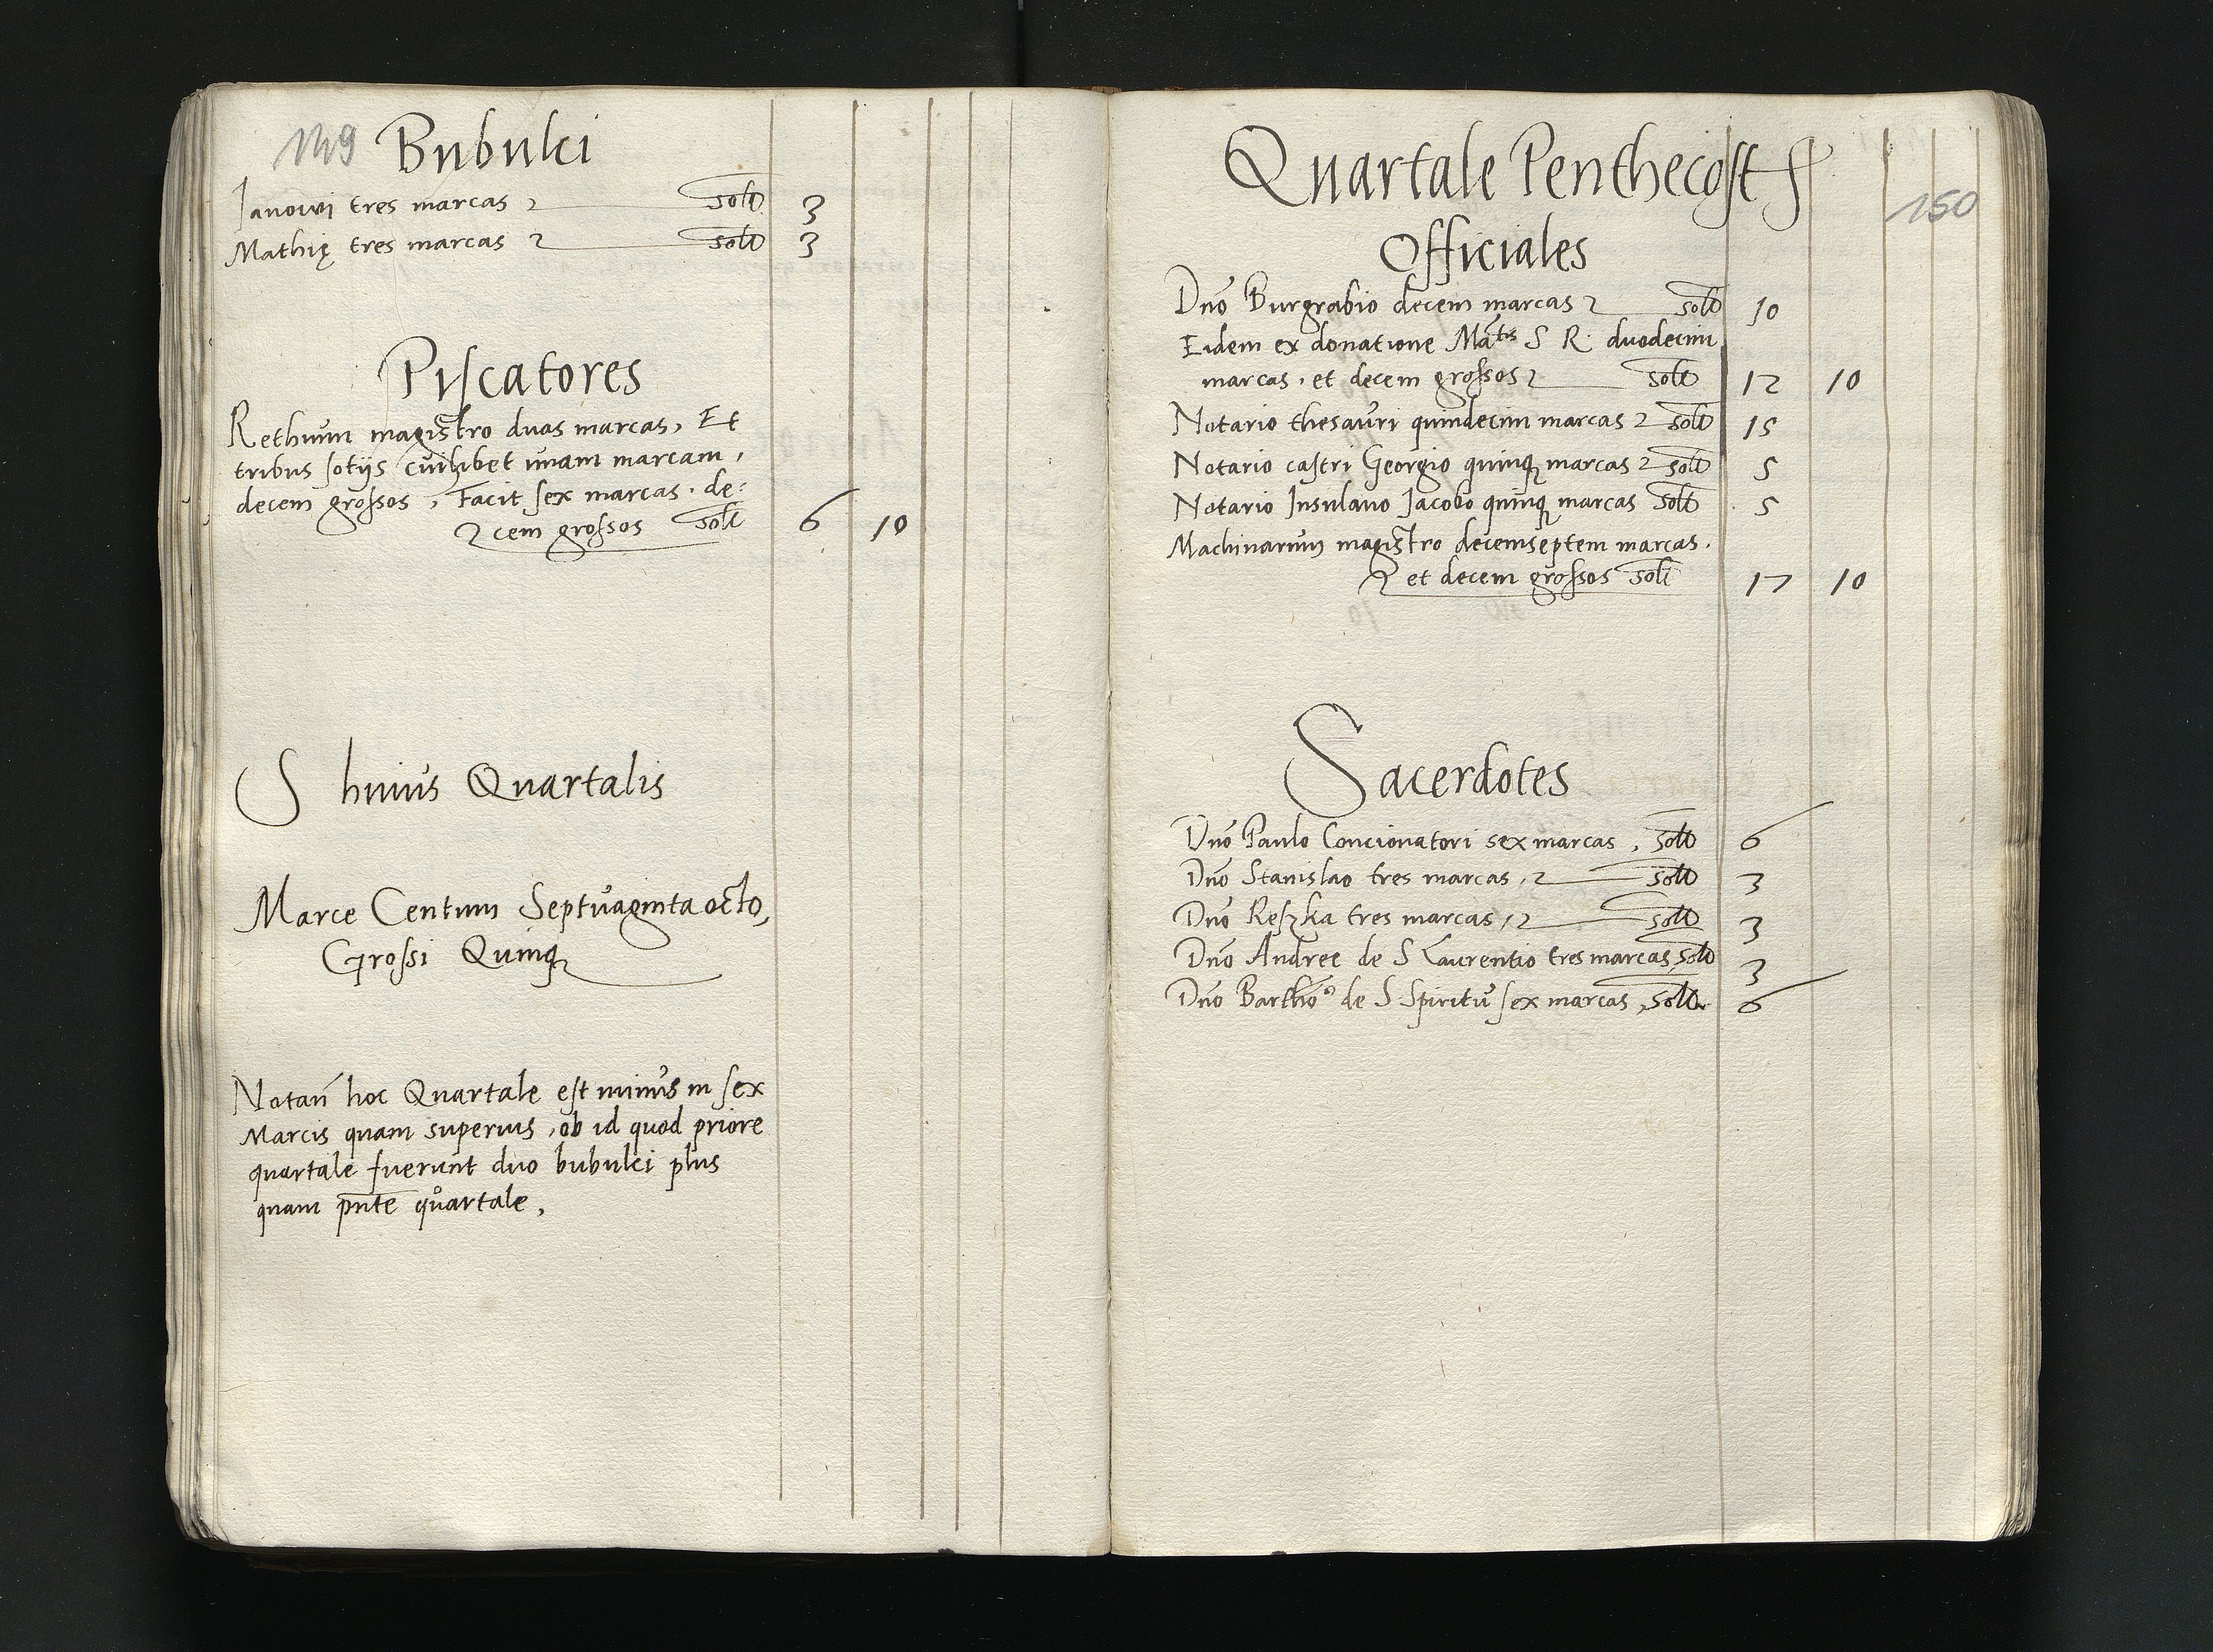 149 Bubulci
Janowi tres marcas solt 3
Mathię tres marcas solt 3
Piscatores
Rethium magistro duas marcas, Et
tribus sotijs cuilibet unam marcam,
decem grossos, Facit sex marcas. de:
cem grossos solt 6 10
S huius Quartalis
Marce Centum Septuaginta octo,
Grossi Quinq
Notan hoc Quartale est minus in sex
Marcis quam superius, ob id quod priore
quartale fuerunt duo bubulci plus
quam pnte quartale,
Quartale Penthecost
150
Officiales
Dno Burgrabio decem marcas solt 10
Eidem ex donatione Matis S R. duodecim
marcas, et decem grossos solt 12 10
Notario thesauri quindecim marcas solt 15
Notario castri Georgio quinq marcas solt 5
Notario Insulano Jacobo quinq marcas solt 5
Machinarum magistro decemseptem marcas.
et decem grossos solt 17 10
Sacerdotes
Dno Paulo Concionatori sex marcas, solt 6
Dno Stanislao tres marcas, solt 3
Dno Reszka tres marcas, solt 3
Dno Andree de S Laurentio tres marcas, solt 3
Dno Bartho de S Spiritu sex marcas, solt 6